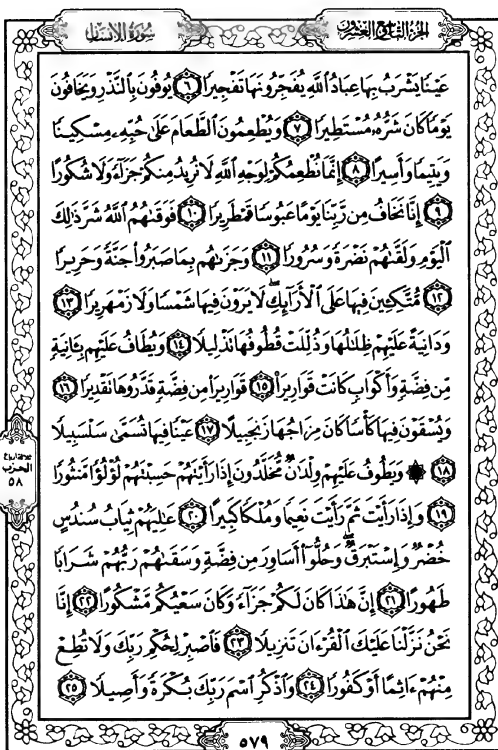 سُورَةُ الإِنسَانِ
الجُزْءُ التَّاسِعُ وَالعِشْرُونَ
عَيْنًا يَشْرَبُ بِهَا عِبَادُ ٱللَّهِ يُفَجِّرُونَهَا تَفْجِيرًا ٦ يُوفُونَ بِٱلنَّذْرِ وَيَخَافُونَ
يَوْمًا كَانَ شَرُّهُۥ مُسْتَطِيرًا ٧ وَيُطْعِمُونَ ٱلطَّعَامَ عَلَىٰ حُبِّهِۦ مِسْكِينًا
وَيَتِيمًا وَأَسِيرًا ٨ إِنَّمَا نُطْعِمُكُمْ لِوَجْهِ ٱللَّهِ لَا نُرِيدُ مِنكُمْ جَزَآءً وَلَا شُكُورًا
٩ إِنَّا نَخَافُ مِن رَّبِّنَا يَوْمًا عَبُوسًا قَمْطَرِيرًا ١٠ فَوَقَىٰهُمُ ٱللَّهُ شَرَّ ذَٰلِكَ
ٱلْيَوْمِ وَلَقَّىٰهُمْ نَضْرَةً وَسُرُورًا ١١ وَجَزَىٰهُم بِمَا صَبَرُوا۟ جَنَّةً وَحَرِيرًا
١٢ مُّتَّكِـِٔينَ فِيهَا عَلَى ٱلْأَرَآئِكِ ۖ لَا يَرَوْنَ فِيهَا شَمْسًا وَلَا زَمْهَرِيرًا ١٣
وَدَانِيَةً عَلَيْهِمْ ظِلَٰلُهَا وَذُلِّلَتْ قُطُوفُهَا تَذْلِيلًا ١٤ وَيُطَافُ عَلَيْهِم بِـَٔانِيَةٍ
مِّن فِضَّةٍ وَأَكْوَابٍ كَانَتْ قَوَارِيرَا۠ ١٥ قَوَارِيرَا۟ مِن فِضَّةٍ قَدَّرُوهَا تَقْدِيرًا ١٦
وَيُسْقَوْنَ فِيهَا كَأْسًا كَانَ مِزَاجُهَا زَنجَبِيلًا ١٧ عَيْنًا فِيهَا تُسَمَّىٰ سَلْسَبِيلًا
١٨ ۞ وَيَطُوفُ عَلَيْهِمْ وِلْدَٰنٌ مُّخَلَّدُونَ إِذَا رَأَيْتَهُمْ حَسِبْتَهُمْ لُؤْلُؤًا مَّنثُورًا
١٩ وَإِذَا رَأَيْتَ ثَمَّ رَأَيْتَ نَعِيمًا وَمُلْكًا كَبِيرًا ٢٠ عَٰلِيَهُمْ ثِيَابُ سُندُسٍ
خُضْرٌ وَإِسْتَبْرَقٌ ۖ وَحُلُّوٓا۟ أَسَاوِرَ مِن فِضَّةٍ وَسَقَىٰهُمْ رَبُّهُمْ شَرَابًا
طَهُورًا ٢١ إِنَّ هَٰذَا كَانَ لَكُمْ جَزَآءً وَكَانَ سَعْيُكُم مَّشْكُورًا ٢٢ إِنَّا
نَحْنُ نَزَّلْنَا عَلَيْكَ ٱلْقُرْءَانَ تَنزِيلًا ٢٣ فَٱصْبِرْ لِحُكْمِ رَبِّكَ وَلَا تُطِعْ
مِنْهُمْ ءَاثِمًا أَوْ كَفُورًا ٢٤ وَٱذْكُرِ ٱسْمَ رَبِّكَ بُكْرَةً وَأَصِيلًا ٢٥
الحزب
٥٨
٥٧٩